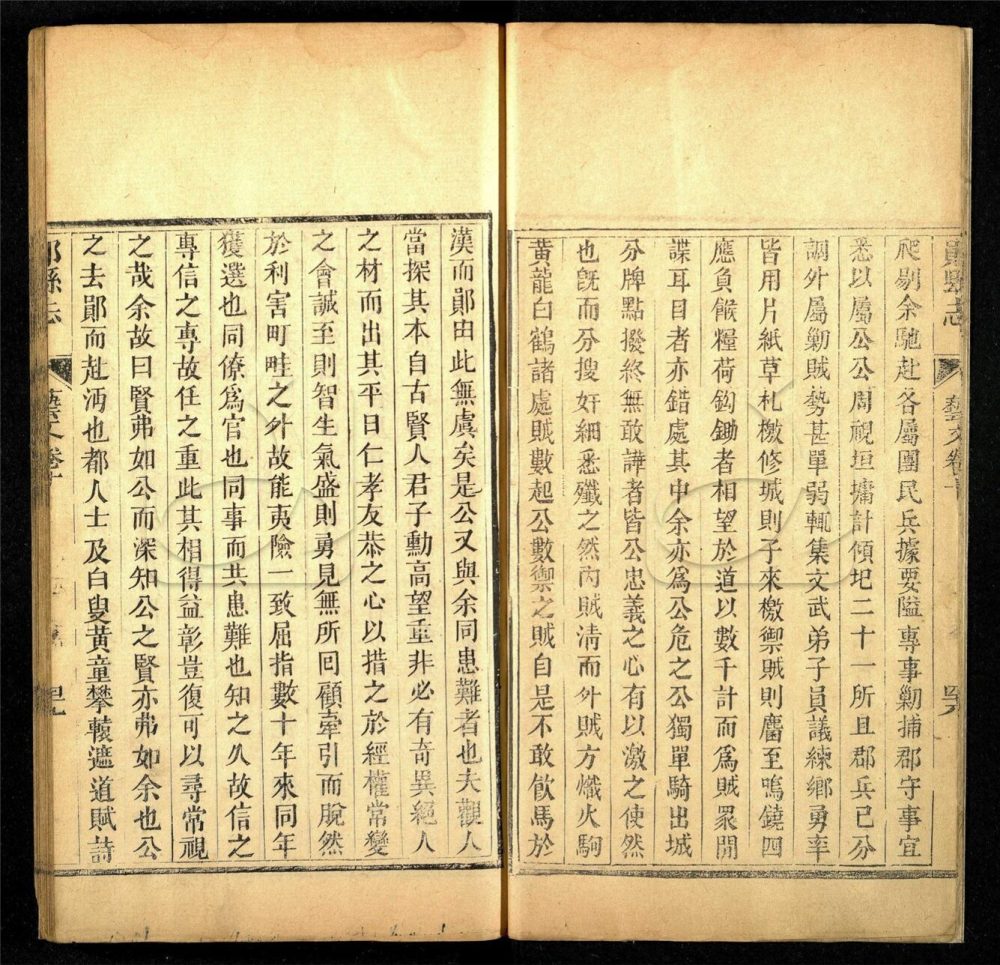 鄖縣志
藝文卷十
四十八
爬剔余馳赴各屬團民兵據要隘專事勦捕郡守事宜
悉以屬公公周視垣墉計傾圮二十一所且郡兵已分
調外屬勦賊勢甚單弱輒集文武弟子員議練鄉勇率
皆用片紙草札檄修城則子來檄禦賊則麕至鳴鐃四
應負餱糧荷鈎鋤者相望於道以數千計而為賊眾開
諜耳目者亦錯處其中余亦爲公危之公獨單騎出城
分牌點撥終無敢譁者皆公忠義之心有以激之使然
也旣而分搜奸細悉殲之然內賊清而外賊方熾火駒
黄龍白鶴諸處賊數起公數禦之賊自是不敢飲馬於
漢而鄖由此無虞矣是公又與余同患難者也夫觀人
當探其本自古賢人君子勳高望重非必有奇異絕人
之材而出其平日仁孝友恭之心以措之於經權常變
之會誠至則智生氣盛則勇見無所回顧牽引而脫然
於利害町畦之外故能夷險一致屈指數十年來同年
獲選也同僚爲官也同事而共患難也知之久故信之
專信之專故任之重此其相得益彰豈復可以尋常視
之哉余故曰賢弗如公而深知公之賢亦弗如余也公
之去鄖而赴沔也都人士及白叟黃童攀轅遮道賦詩
鄖縣志
藝文卷十
四十九